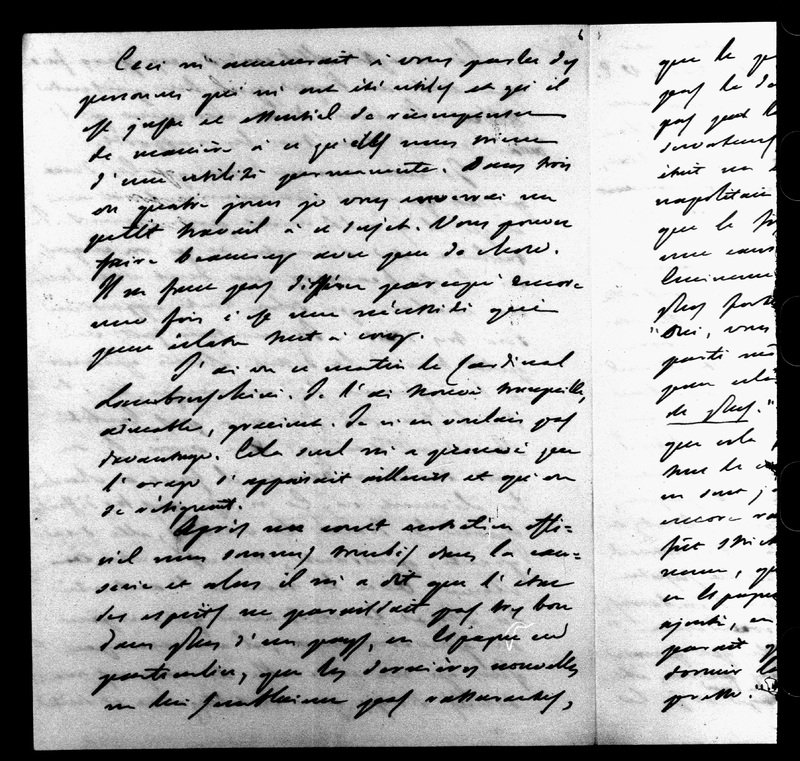 6
Ceci m'amenerait à vous parler des
personnes qui m'ont été utiles et qu'il
est juste et essentiel de récompenser
de manière à ce qu'elles nous soient
d'une utilité permanente. Dans trois
ou quatre jours je vous enverrai un
petit travail à ce sujet. Vous pouvez
faire beaucoup avec peu de chose.
Il ne faut pas différer parcequ'encore
une fois c'est une nécessité que
peut éclater tout à coup.
J'ai vu ce matin le Cardinal
Lambruschini. Je l'ai trouvé tranquille,
aimable, gracieux. Je n'en voulais pas
davantage. Cela seul m'a prouvé que
l'orage s'appaisait ailleurs et qu'on
se résignait.
Après un court entretien offi-
ciel nous sommes tombés dans la cau-
serie et alors il m'a dit que l'état
des esprits ne paraissait pas très bon
dans plus d'un pays, en Espagne en
particulier, que les dernières nouvelles
ne lui semblaient pas rassurantes,
que le
pas le
pas que
était un
napolitain
que le
une
Eminence
plus
"Oui, vous
parti
pour
de plus."
que cela
tout le
en
encore
fût
nonce,
en Espagne
ajouté, en
parait
donner